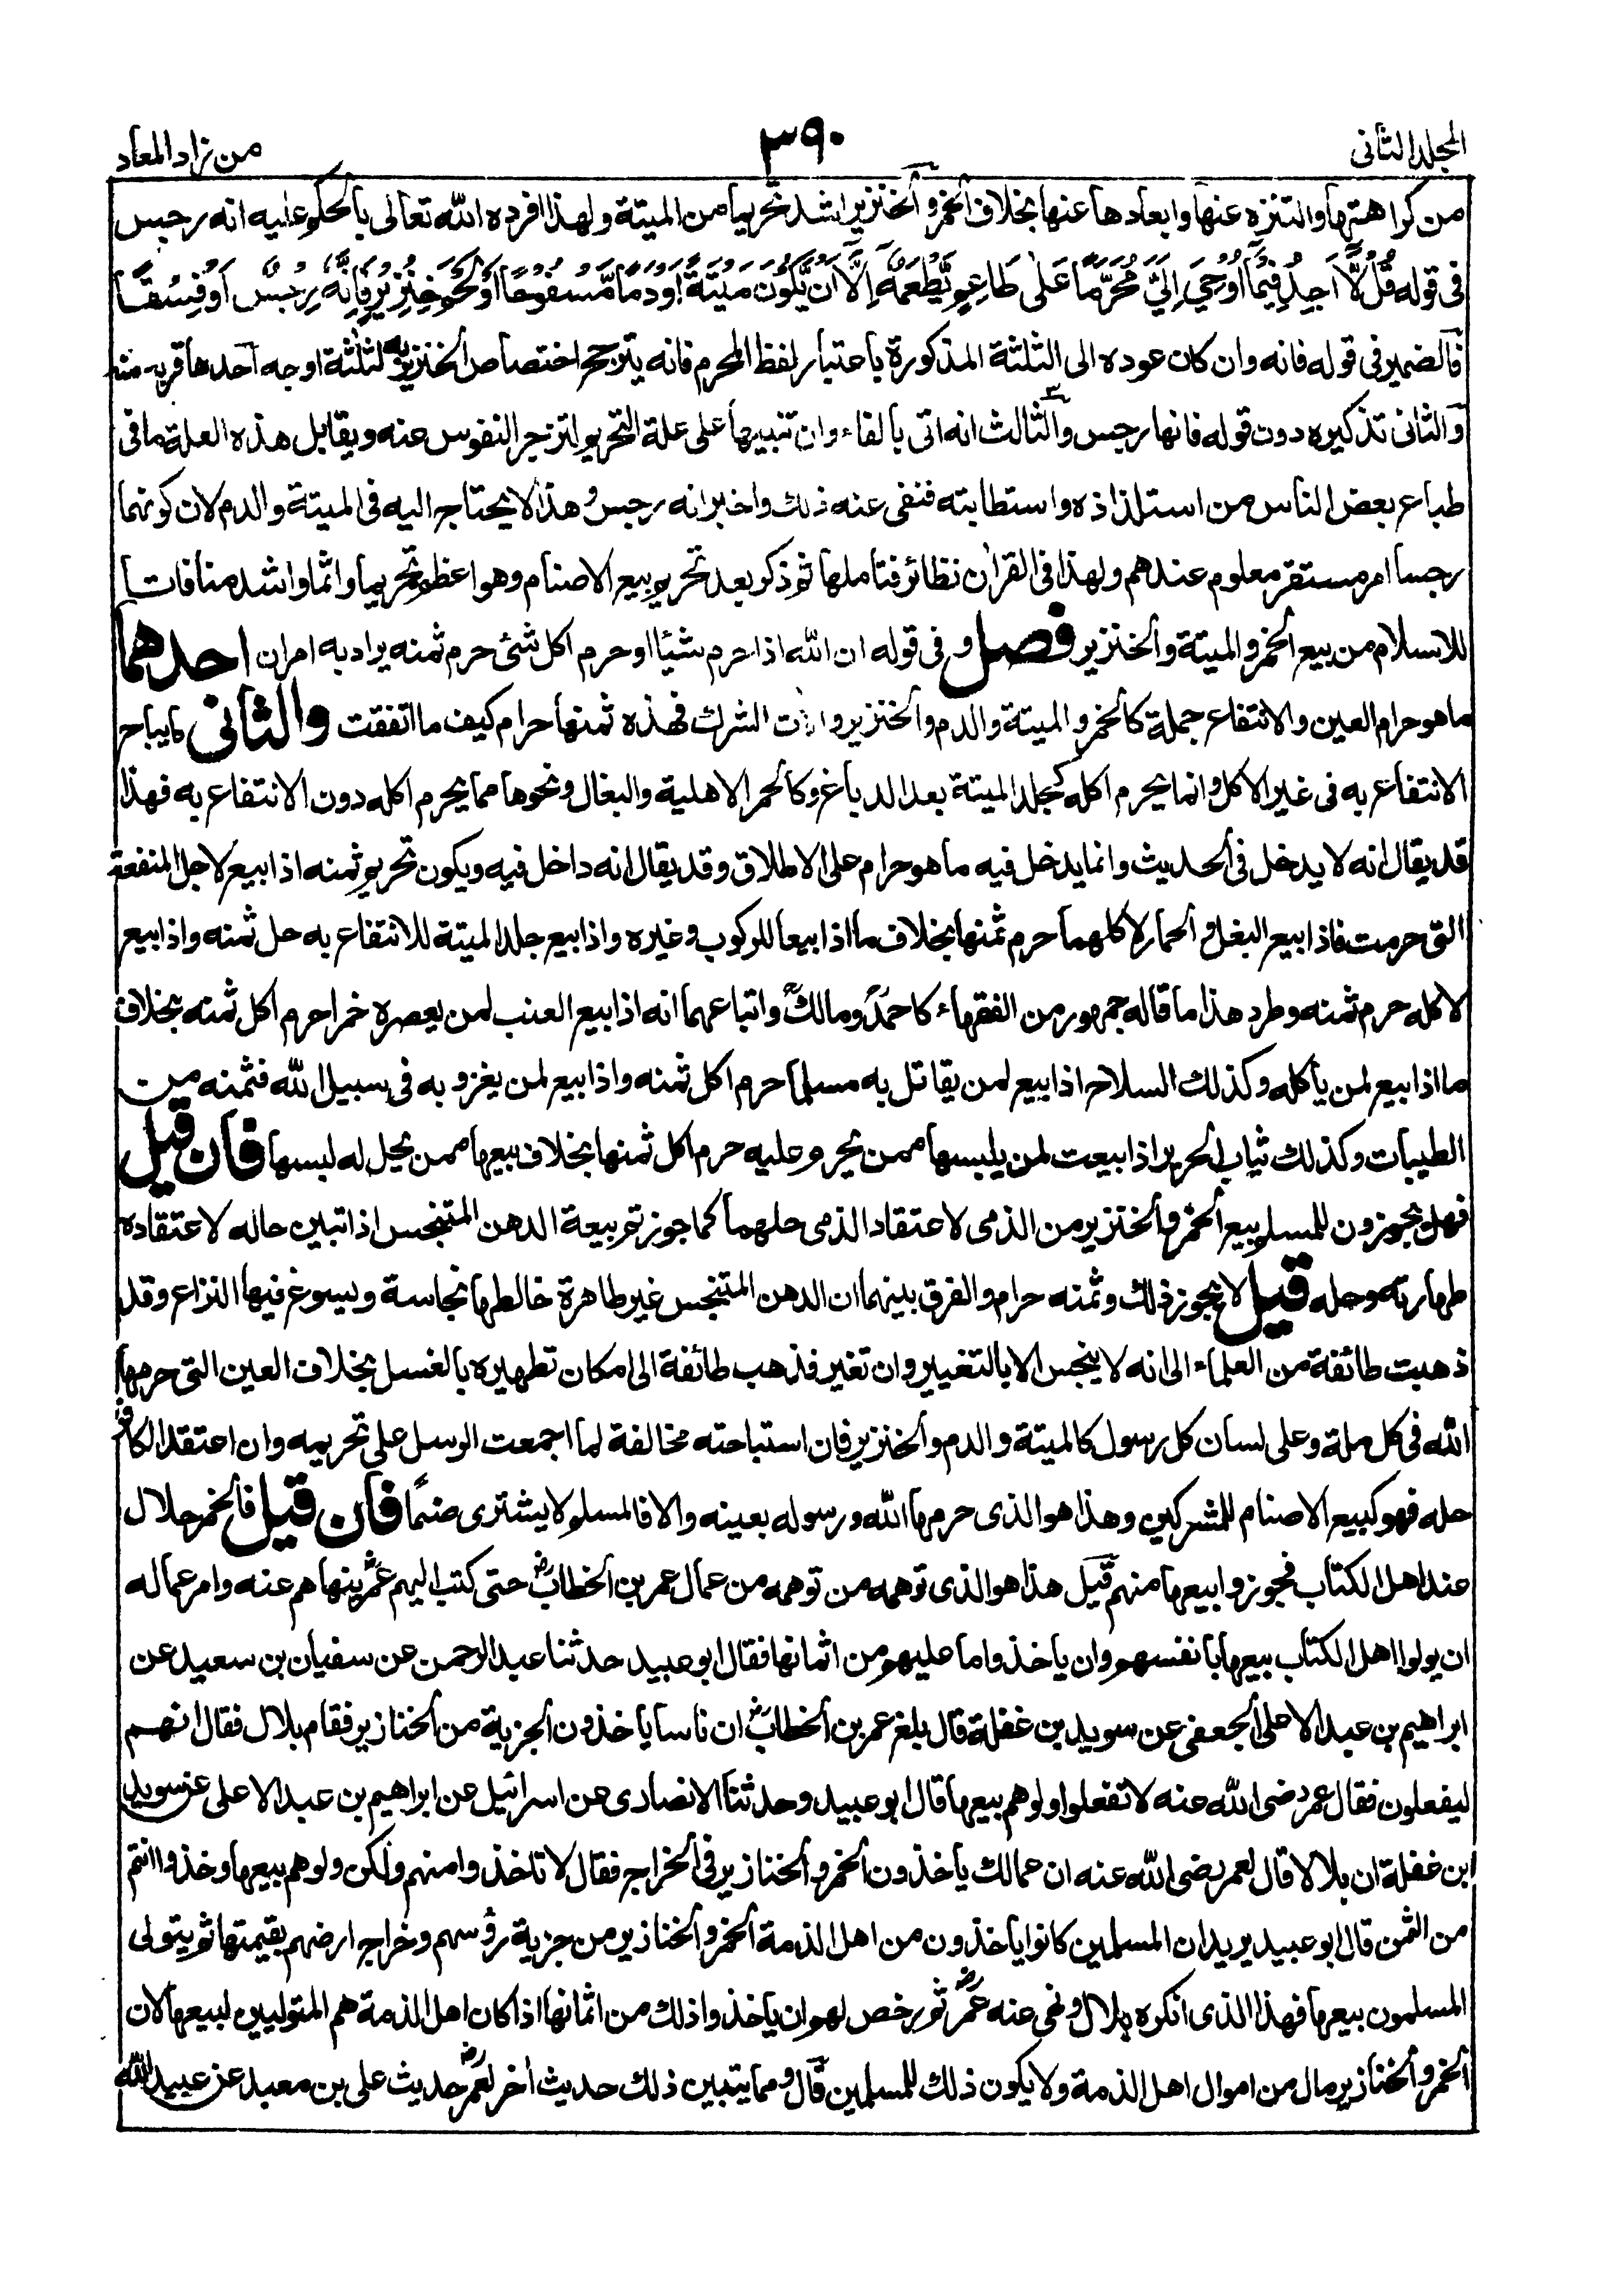 المجلد الثاني
٣٩٠
من زاد المعاد
من كراهتها والتنزه عنها وابعادها عنها بخلاف الخمر والخنزير اشد تحريما من الميتة ولهذا افرده الله تعالى بالحكم عليه انه رجس
فى قوله قُلْ لَّا اَجِدُ فِيْمَا اُوْحِيَ اِلَيَّ مُحَرَّمًا عَلٰى طَاعِمٍ يَّطْعَمُهٗ اِلَّا اَنْ يَّكُوْنَ مَيْتَةً اَوْ دَمًا مَّسْفُوْحًا اَوْ لَحْمَ خِنْزِيْرٍ فَاِنَّهٗ رِجْسٌ اَوْ فِسْقًا
فالضمير فى قوله فانه وان كان عوده الى الثلثة المذكورة باعتبار لفظ المحرم فانه يترجح اختصاص الخنزير به لثلثة اوجه احدها قربه منه
والثانى تذكيره دون قوله فانها رجس والثالث انه اتى بالفاء وان تنبيها على علة التحريم لتزجر النفوس عنه ويقابل هذه العلة ما فى
طباع بعض الناس من استلذاذه واستطابته فنفى عنه ذلك واخبر انه رجس وهذا لا يحتاج اليه فى الميتة والدم لان كونهما
رجسا امر مستقر معلوم عندهم ولهذا فى القران نظائر فتاملها ثم ذكر بعد تحريم بيع الاصنام وهو اعظم تحريما واثما واشد منافات
للاسلام من بيع الخمر والميتة والخنزير فصل وفى قوله ان الله اذا حرم شيئا او حرم اكل شئ حرم ثمنه يراد به امران احدهما
ما هو حرام العين والانتفاع جملة كالخمر والميتة والدم والخنزير و الشرك فهذه ثمنها حرام كيف ما اتفقت والثانى ما يباح
الانتفاع به فى غير الاكل وانما يحرم اكله كجلد الميتة بعد الدباغ وكالحمر الاهلية والبغال ونحوها مما يحرم اكله دون الانتفاع به فهذا
قد يقال انه لا يدخل فى الحديث وانما يدخل فيه ما هو حرام على الاطلاق وقد يقال انه داخل فيه ويكون تحريم ثمنه اذا بيع لاجل المنفعة
التى حرمت فاذا بيع البغل والحمار لاكلهما حرم ثمنها بخلاف ما اذا بيعا للركوب وغيره واذا بيع جلد الميتة للانتفاع به حل ثمنه واذا بيع
لاكله حرم ثمنه وطرد هذا ما قاله جمهور من الفقهاء كاحمد ومالك واتباعهما انه اذا بيع العنب لمن يعصره خمرا حرم اكل ثمنه بخلاف
ما اذا بيع لمن يأكله وكذلك السلاح اذا بيع لمن يقاتل به مسلما حرم اكل ثمنه واذا بيع لمن يغزو به فى سبيل الله فثمنه من
الطيبات وكذلك ثياب الحرير اذا بيعت لمن يلبسها ممن يحرم عليه حرم اكل ثمنها بخلاف بيعها ممن يحل له لبسها فان قيل
فهل تجوزون للمسلم بيع الخمر والخنزير من الذمى لاعتقاد الذمى حلهما كما جوزتم بيعة الدهن المتنجس اذا تبين حاله لاعتقاده
طهارته وحله قيل لا يجوز ذلك وثمنه حرام والفرق بينهما ان الدهن المتنجس غير طاهرة خالطها نجاسة ويسوغ فيها النزاع وقد
ذهبت طائفة من العلماء الى انه لا ينجس الا بالتغيير وان تغير فذهب طائفة الى امكان تطهيره بالغسل بخلاف العين التى حرمها
الله فى كل ملة وعلى لسان كل رسول كالميتة والدم والخنزير فان استباحته مخالفة لما اجمعت الرسل على تحريمه وان اعتقد الكافر
حله فهو كبيع الاصنام للمشركين وهذا هو الذى حرمها الله ورسوله بعينه والا فالمسلم لا يشترى صنمًا فان قيل فالخمر حلال
عند اهل الكتاب فجوزوا بيعها منهم قيل هذا هو الذى توهمه من توهمه من عمال عمر بن الخطاب رض حتى كتب اليهم عمر رض ينهاهم عنه وامر عماله
ان يولوا اهل الكتاب بيعها بانفسهم وان ياخذوا ما عليهم من اثمانها فقال ابو عبيد حدثنا عبد الرحمن عن سفيان بن سعيد عن
ابراهيم بن عبد الاعلى الجعفى عن سويد بن غفلة قال بلغ عمر بن الخطاب رض ان ناسا ياخذون الجزية من الخنازير فقام بلال فقال انهم
ليفعلون فقال عمر رضى الله عنه لا تفعلوا ولوهم بيعها قال ابو عبيد وحدثنا الانصارى عن اسرائيل عن ابراهيم بن عبد الاعلى عن سويد
ابن غفلة ان بلالا قال لعمر رضى الله عنه ان عمالك يأخذون الخمر والخنازير فى الخراج فقال لا تاخذوا منهم ولكن ولوهم بيعها وخذوا انتم
من الثمن قال ابو عبيد يريد ان المسلمين كانوا ياخذون من اهل الذمة الخمر والخنازير من جزية رؤسهم وخراج ارضهم بقيمتها ثم يتولى
المسلمون بيعها فهذا الذى انكره بلال ونهى عنه عمر رض ثم رخص لهم ان ياخذوا ذلك من اثمانها اذا كان اهل الذمة هم المتوليين لبيعها لان
الخمر والخنازير مال من اموال اهل الذمة ولا يكون ذلك للمسلمين قال ومما يتبين ذلك حديث اخر لعمر رض حديث على بن معبد عن عبيد الله